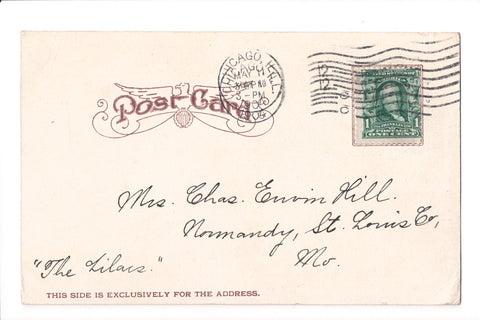 CHICAGO, ILL.
MAY 11
3-PM
1904
Post Card
ONE CENT
Mrs. Chas. Ervin Hill.
Normandy, St. Louis Co,
Mo.
"The Lilacs."
THIS SIDE IS EXCLUSIVELY FOR THE ADDRESS.